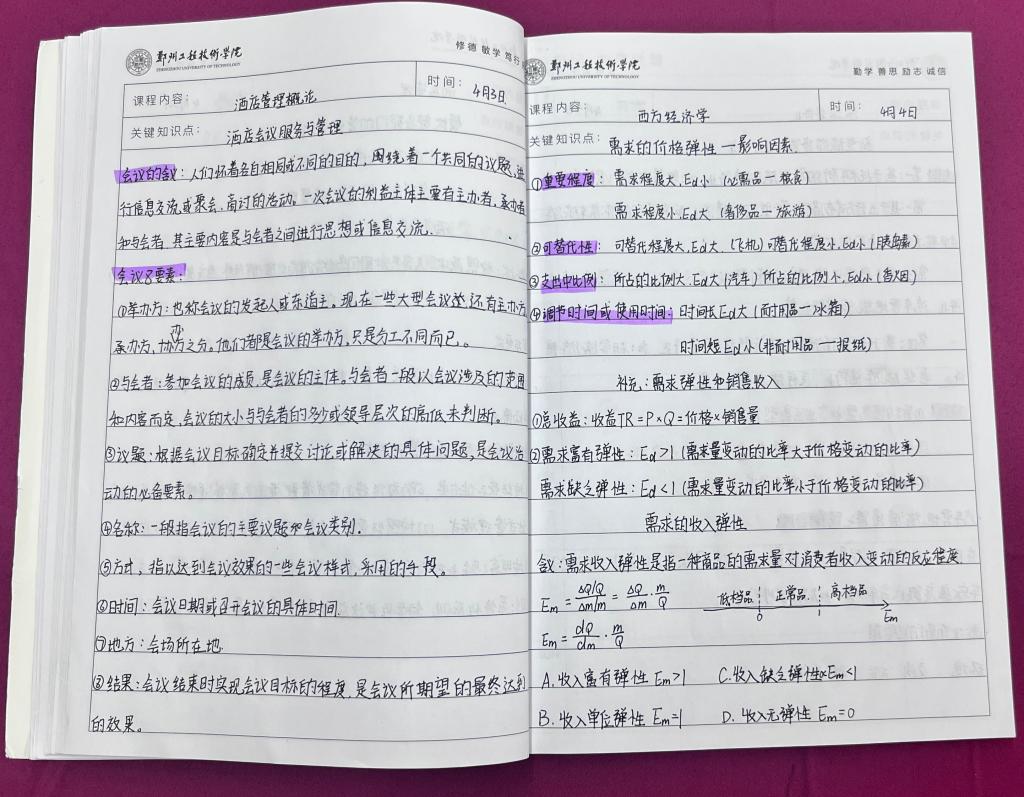 郑州工程技术学院
ZHENGZHOU UNIVERSITY OF TECHNOLOGY
修德 敏学 笃行
课程内容：酒店管理概论 时间：4月3日.
关键知识点：酒店会议服务与管理
会议的含义：人们怀着各自相同或不同的目的，围绕着一个共同的议题，进
行信息交流或聚会、商讨的活动。一次会议的利益主体主要有主办者，承办者
和与会者，其主要内容是与会者之间进行思想或信息交流.
会议8要素：
①举办方：也称会议的发起人或东道主。现在一些大型会议还有主办方
承办方，协办方之分。他们都是会议的举办方，只是分工不同而已。
②与会者：参加会议的成员，是会议的主体。与会者一般以会议涉及的范围
和内容而定，会议的大小与与会者的多少或领导层次的高低来判断。
③议题：根据会议目标确定并提交讨论或解决的具体问题，是会议活
动的必备要素。
④名称：一般指会议的主要议题和会议类别.
⑤方式，指以达到会议效果的一些会议样式，采用的手段。
⑥时间：会议日期或召开会议的具体时间.
⑦地方：会场所在地.
⑧结果：会议结束时实现会议目标的程度，是会议所期望的最终达到
的效果。
郑州工程技术学院
ZHENGZHOU UNIVERSITY OF TECHNOLOGY
勤学 善思 励志 诚信
课程内容：西方经济学 时间：4月4日
关键知识点：需求的价格弹性—影响因素.
①重要程度：需求程度大，Ed小（必需品—粮食）
需求程度小，Ed大（奢侈品—旅游）
②可替代性：可替代程度大，Ed大（飞机）可替代程度小，Ed小（胰岛素）
③支出中比例：所占的比例大，Ed大（汽车）所占的比例小，Ed小（香烟）
④调节时间或使用时间：时间长Ed大（耐用品—冰箱）
时间短Ed小（非耐用品—报纸）
补充：需求弹性和销售收入
①总收益：收益TR=P×Q=价格×销售量
②需求富有弹性：Ed>1（需求量变动的比率大于价格变动的比率）
需求缺乏弹性：Ed<1（需求量变动的比率小于价格变动的比率）
需求的收入弹性
含义：需求收入弹性是指一种商品的需求量对消费者收入变动的反应程度.
Em = (ΔQ/Q)/(Δm/m) = ΔQ/Δm · m/Q 低档品 正常品 高档品
0 1 Em
Em = dQ/dm · m/Q
A.收入富有弹性 Em>1 C.收入缺乏弹性 Em<1
B.收入单位弹性 Em=1 D.收入无弹性 Em=0